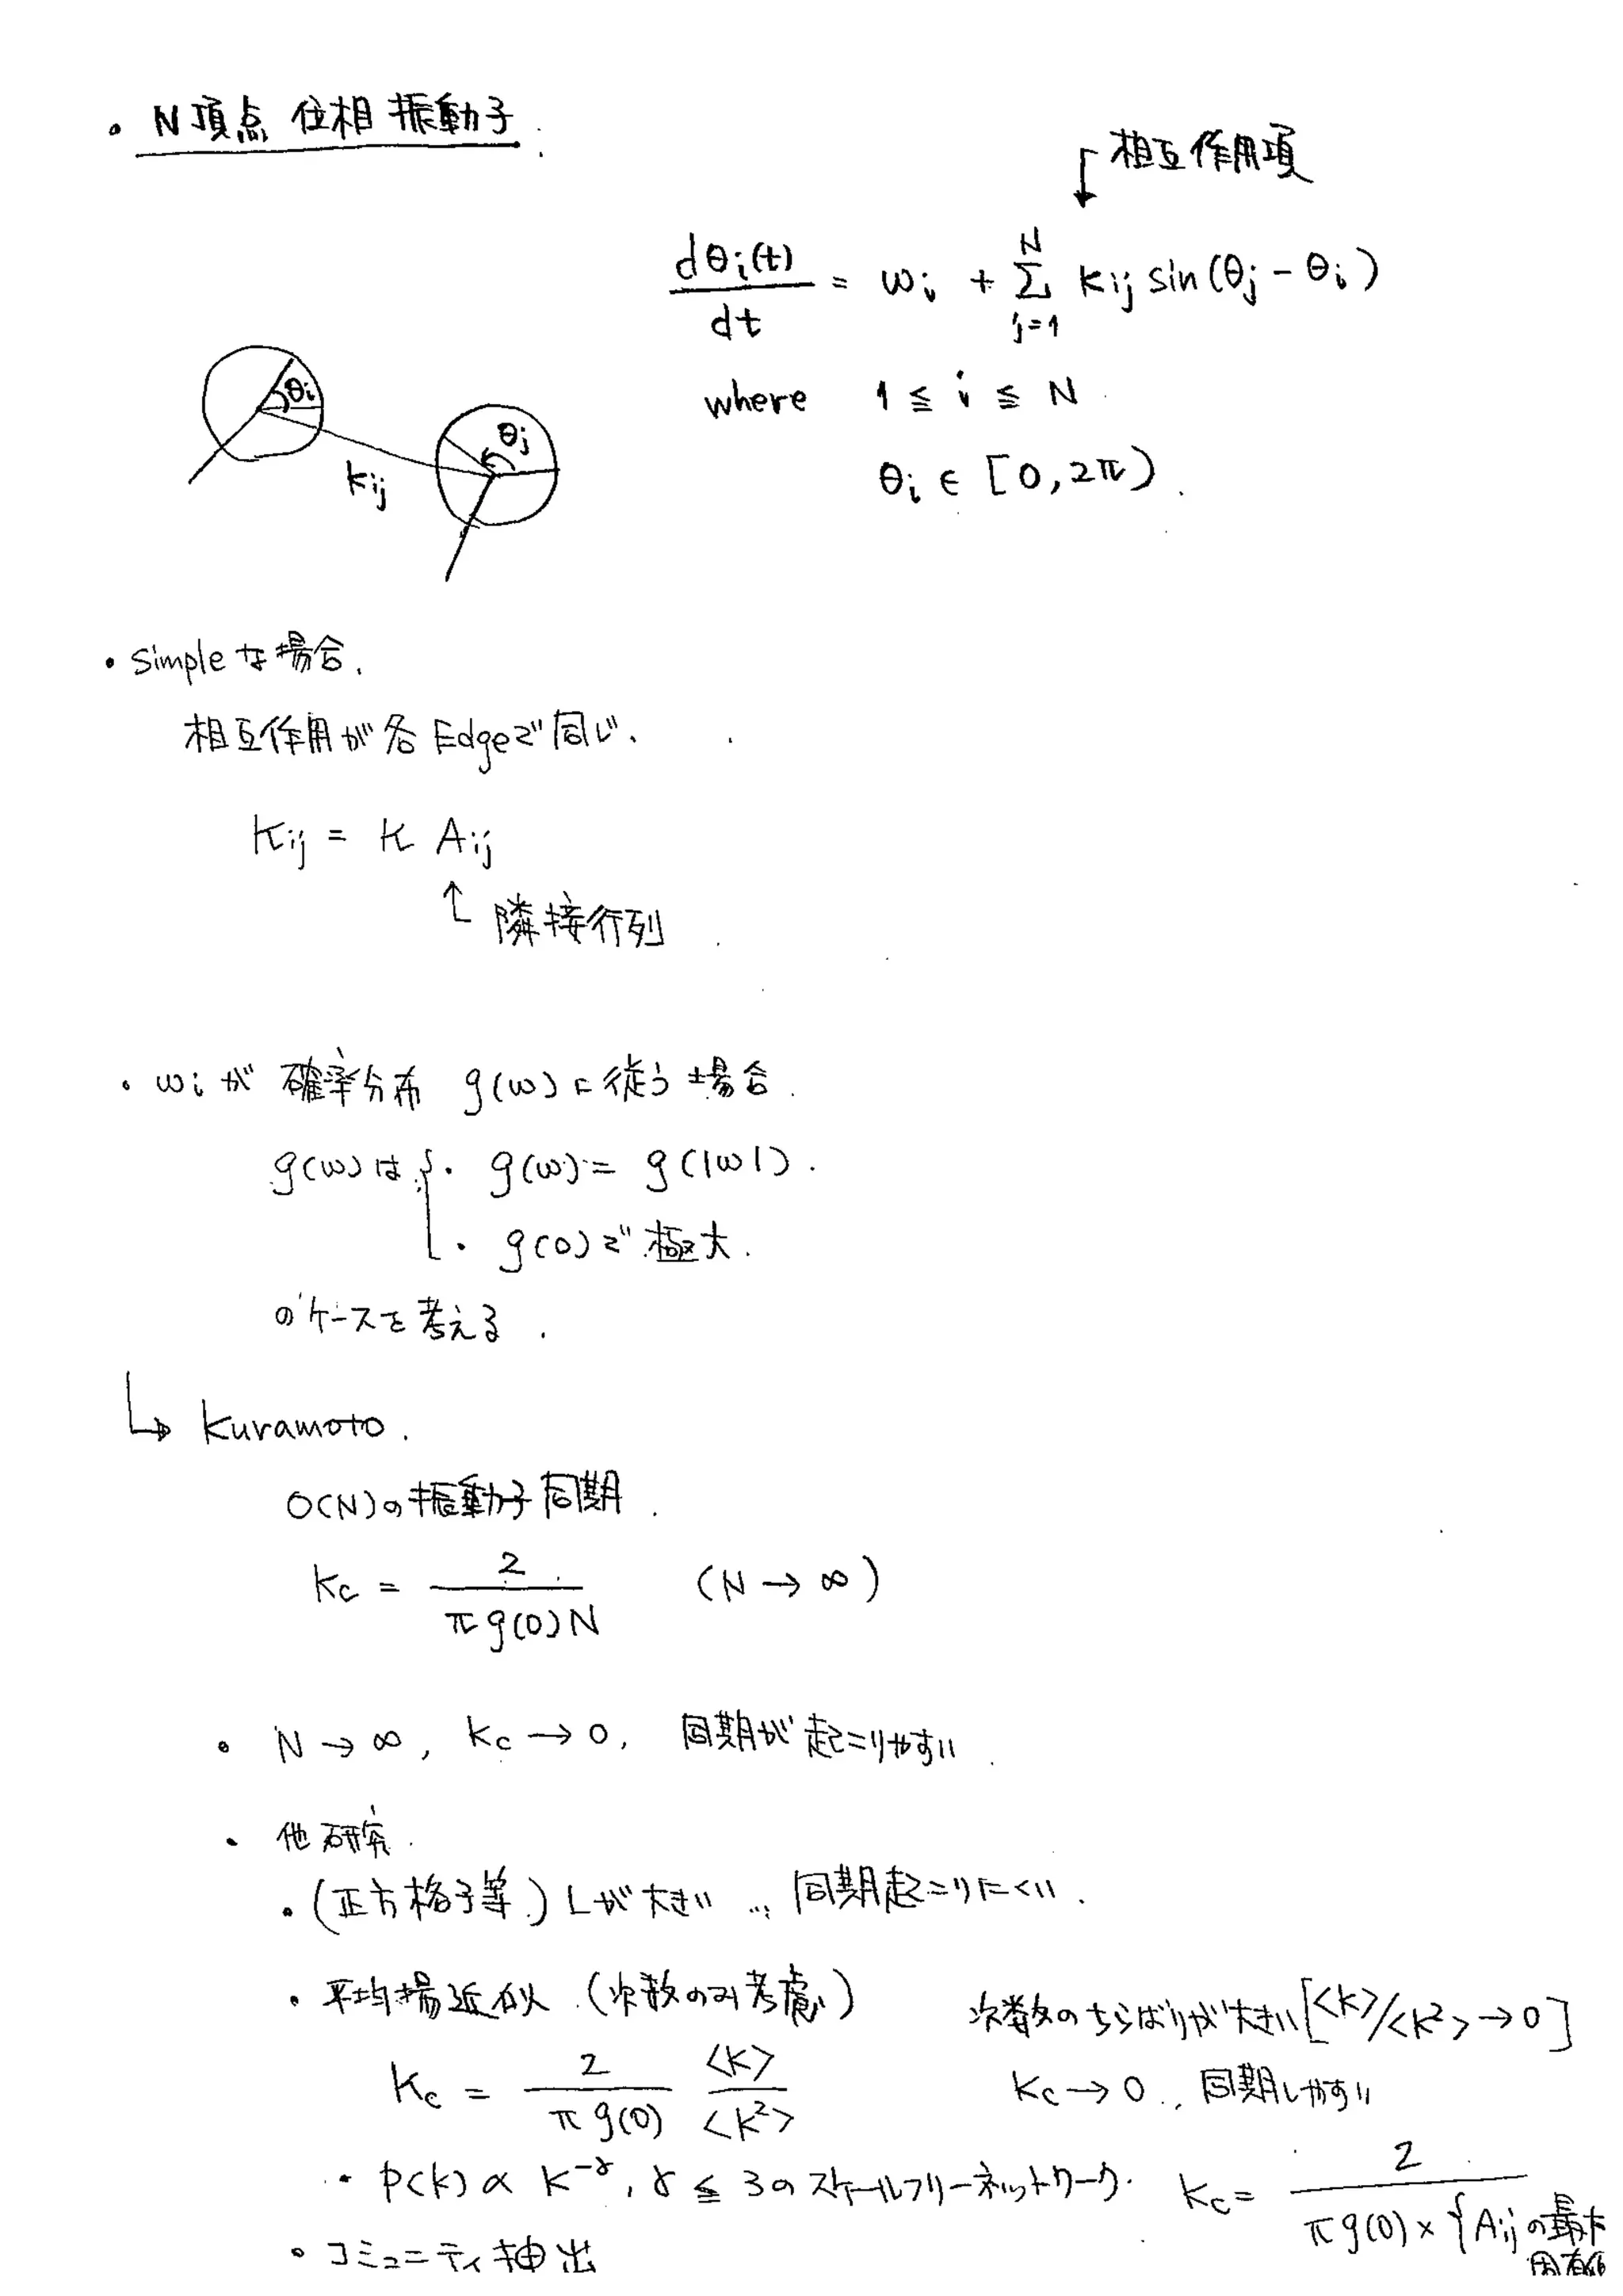 ・N頂点 位相振動子.
相互作用項
dθi(t)/dt = ωi + Σ_{j=1}^{N} Kij sin(θj − θi)
where 1 ≦ i ≦ N
θi ∈ [0, 2π).
θi
θj
Kij
・Simpleな場合.
相互作用が各Edgeで同じ.
Kij = K Aij
↑ 隣接行列
・ωiが 確率分布 g(ω)に従う場合.
g(ω)は { ・ g(ω) = g(|ω|).
・ g(0)で極大.
のケースを考える.
↳ Kuramoto.
O(N)の振動子同期.
Kc = 2/(πg(0)N) (N → ∞)
・ N → ∞, Kc → 0, 同期が起こりやすい.
・ 他研究.
・(正方格子等) Lが大きい ... 同期起こりにくい.
・平均場近似 (次数のみ考慮)
次数のちらばりが大きい [<k>/<k²> → 0]
Kc = 2/(πg(0)) <k>/<k²>
Kc → 0 ... 同期しやすい
・ p(k) ∝ k^{-γ}, γ ≦ 3のスケールフリーネットワーク.
Kc = 2/(πg(0) × {Aijの最大
固有値
・コミュニティ抽出